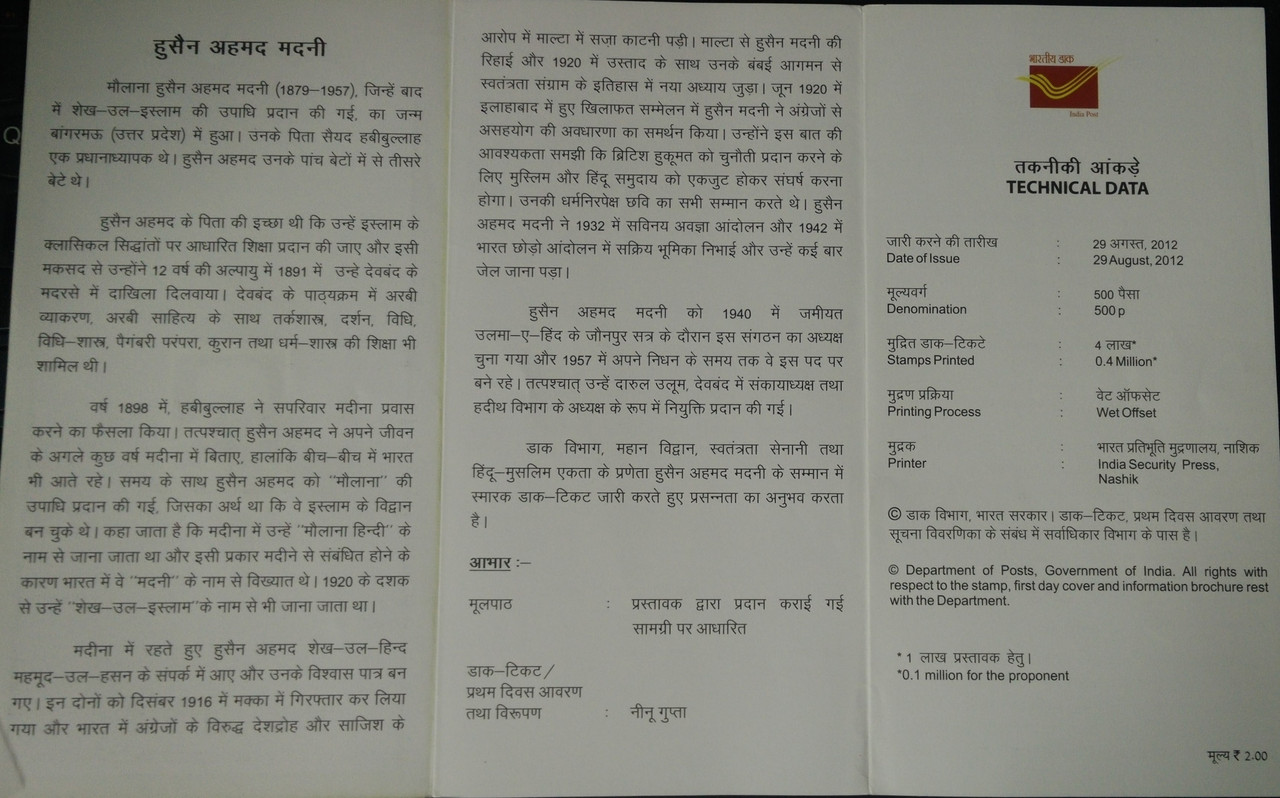 हुसैन अहमद मदनी
मौलाना हुसैन अहमद मदनी (1879–1957), जिन्हें बाद
में शेख–उल–इस्लाम की उपाधि प्रदान की गई, का जन्म
बांगरमऊ (उत्तर प्रदेश) में हुआ। उनके पिता सैयद हबीबुल्लाह
एक प्रधानाध्यापक थे। हुसैन अहमद उनके पांच बेटों में से तीसरे
बेटे थे।
हुसैन अहमद के पिता की इच्छा थी कि उन्हें इस्लाम के
क्लासिकल सिद्धांतों पर आधारित शिक्षा प्रदान की जाए और इसी
मकसद से उन्होंने 12 वर्ष की अल्पायु में 1891 में उन्हे देवबंद के
मदरसे में दाखिला दिलवाया। देवबंद के पाठ्यक्रम में अरबी
व्याकरण, अरबी साहित्य के साथ तर्कशास्त्र, दर्शन, विधि,
विधि–शास्त्र, पैगंबरी परंपरा, कुरान तथा धर्म–शास्त्र की शिक्षा भी
शामिल थी।
वर्ष 1898 में, हबीबुल्लाह ने सपरिवार मदीना प्रवास
करने का फैसला किया। तत्पश्चात् हुसैन अहमद ने अपने जीवन
के अगले कुछ वर्ष मदीना में बिताए, हालांकि बीच–बीच में भारत
भी आते रहे। समय के साथ हुसैन अहमद को "मौलाना" की
उपाधि प्रदान की गई, जिसका अर्थ था कि वे इस्लाम के विद्वान
बन चुके थे। कहा जाता है कि मदीना में उन्हें "मौलाना हिन्दी" के
नाम से जाना जाता था और इसी प्रकार मदीने से संबंधित होने के
कारण भारत में वे "मदनी" के नाम से विख्यात थे। 1920 के दशक
से उन्हें "शेख–उल–इस्लाम"के नाम से भी जाना जाता था।
मदीना में रहते हुए हुसैन अहमद शेख–उल–हिन्द
महमूद–उल–हसन के संपर्क में आए और उनके विश्वास पात्र बन
गए। इन दोनों को दिसंबर 1916 में मक्का में गिरफ्तार कर लिया
गया और भारत में अंग्रेजों के विरुद्ध देशद्रोह और साजिश के
आरोप में माल्टा में सज़ा काटनी पड़ी। माल्टा से हुसैन मदनी की
रिहाई और 1920 में उस्ताद के साथ उनके बंबई आगमन से
स्वतंत्रता संग्राम के इतिहास में नया अध्याय जुड़ा। जून 1920 में
इलाहाबाद में हुए खिलाफत सम्मेलन में हुसैन मदनी ने अंग्रेजों से
असहयोग की अवधारणा का समर्थन किया। उन्होंने इस बात की
आवश्यकता समझी कि ब्रिटिश हुकूमत को चुनौती प्रदान करने के
लिए मुस्लिम और हिंदू समुदाय को एकजुट होकर संघर्ष करना
होगा। उनकी धर्मनिरपेक्ष छवि का सभी सम्मान करते थे। हुसैन
अहमद मदनी ने 1932 में सविनय अवज्ञा आंदोलन और 1942 में
भारत छोड़ो आंदोलन में सक्रिय भूमिका निभाई और उन्हें कई बार
जेल जाना पड़ा।
हुसैन अहमद मदनी को 1940 में जमीयत
उलमा–ए–हिंद के जौनपुर सत्र के दौरान इस संगठन का अध्यक्ष
चुना गया और 1957 में अपने निधन के समय तक वे इस पद पर
बने रहे। तत्पश्चात् उन्हें दारुल उलूम, देवबंद में संकायाध्यक्ष तथा
हदीथ विभाग के अध्यक्ष के रूप में नियुक्ति प्रदान की गई।
डाक विभाग, महान विद्वान, स्वतंत्रता सेनानी तथा
हिंदू–मुसलिम एकता के प्रणेता हुसैन अहमद मदनी के सम्मान में
स्मारक डाक–टिकट जारी करते हुए प्रसन्नता का अनुभव करता
है।
आभार :–
मूलपाठ : प्रस्तावक द्वारा प्रदान कराई गई
सामग्री पर आधारित
डाक–टिकट/
प्रथम दिवस आवरण
तथा विरूपण : नीनू गुप्ता
भारतीय डाक
India Post
तकनीकी आंकड़े
TECHNICAL DATA
जारी करने की तारीख : 29 अगस्त, 2012
Date of Issue : 29 August, 2012
मूल्यवर्ग : 500 पैसा
Denomination : 500 p
मुद्रित डाक–टिकटे : 4 लाख*
Stamps Printed : 0.4 Million*
मुद्रण प्रक्रिया : वेट ऑफसेट
Printing Process : Wet Offset
मुद्रक : भारत प्रतिभूति मुद्रणालय, नाशिक
Printer : India Security Press,
Nashik
© डाक विभाग, भारत सरकार। डाक–टिकट, प्रथम दिवस आवरण तथा
सूचना विवरणिका के संबंध में सर्वाधिकार विभाग के पास है।
© Department of Posts, Government of India. All rights with
respect to the stamp, first day cover and information brochure rest
with the Department.
* 1 लाख प्रस्तावक हेतु।
*0.1 million for the proponent
मूल्य ₹ 2.00